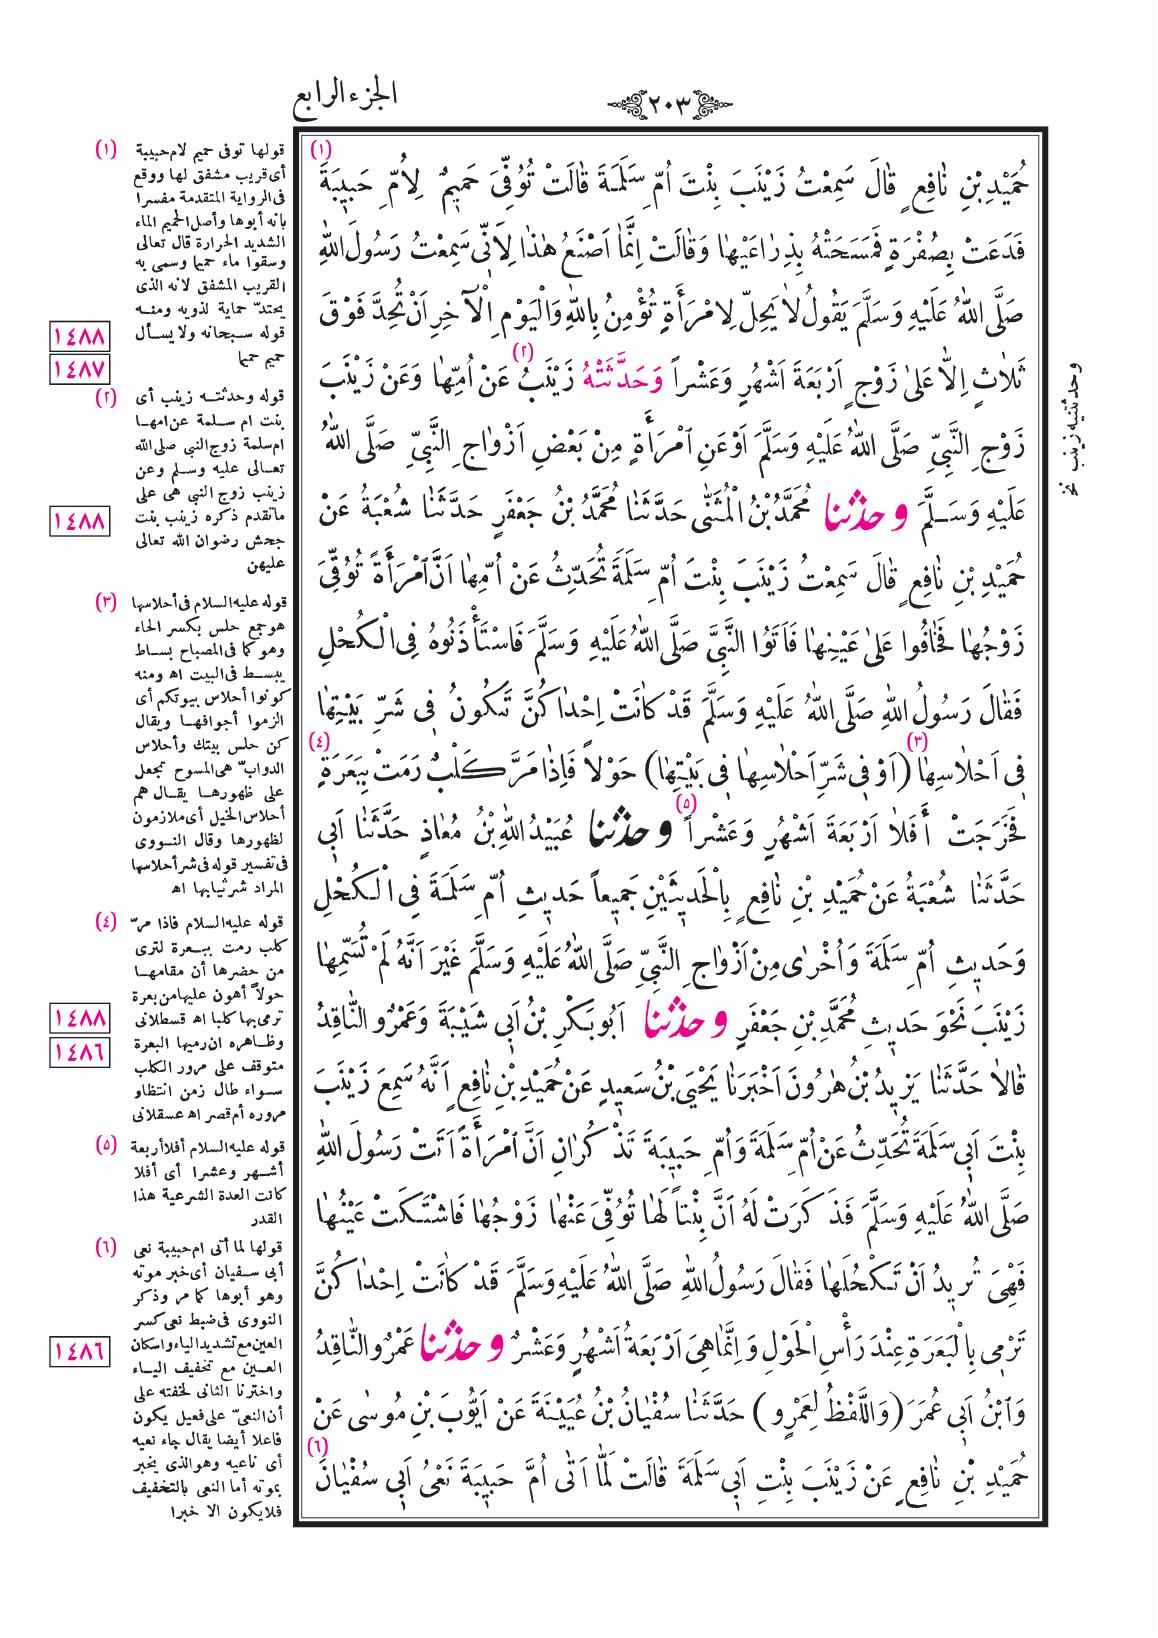 الجزء الرابع
٢٠٣
(١)
حُمَيْدِ بْنِ نَافِعٍ قَالَ سَمِعْتُ زَيْنَبَ بِنْتَ أُمِّ سَلَمَةَ قَالَتْ تُوُفِّيَ حَمِيمٌ لِأُمِّ حَبِيبَةَ
فَدَعَتْ بِصُفْرَةٍ فَمَسَحَتْهُ بِذِرَاعَيْهَا وَقَالَتْ إِنَّمَا أَصْنَعُ هٰذَا لِأَنِّي سَمِعْتُ رَسُولَ اللهِ
صَلَّى اللهُ عَلَيْهِ وَسَلَّمَ يَقُولُ لَا يَحِلُّ لِامْرَأَةٍ تُؤْمِنُ بِاللهِ وَالْيَوْمِ الْآخِرِ أَنْ تُحِدَّ فَوْقَ
ثَلَاثٍ إِلَّا عَلَى زَوْجٍ أَرْبَعَةَ أَشْهُرٍ وَعَشْراً وَحَدَّثَتْهُ زَيْنَبُ (٢) عَنْ أُمِّهَا وَعَنْ زَيْنَبَ
زَوْجِ النَّبِيِّ صَلَّى اللهُ عَلَيْهِ وَسَلَّمَ أَوْ عَنِ امْرَأَةٍ مِنْ بَعْضِ أَزْوَاجِ النَّبِيِّ صَلَّى اللهُ
عَلَيْهِ وَسَلَّمَ وحدثنا مُحَمَّدُ بْنُ الْمُثَنَّى حَدَّثَنَا مُحَمَّدُ بْنُ جَعْفَرٍ حَدَّثَنَا شُعْبَةُ عَنْ
حُمَيْدِ بْنِ نَافِعٍ قَالَ سَمِعْتُ زَيْنَبَ بِنْتَ أُمِّ سَلَمَةَ تُحَدِّثُ عَنْ أُمِّهَا أَنَّ امْرَأَةً تُوُفِّيَ
زَوْجُهَا فَخَافُوا عَلَى عَيْنِهَا فَأَتَوُا النَّبِيَّ صَلَّى اللهُ عَلَيْهِ وَسَلَّمَ فَاسْتَأْذَنُوهُ فِي الْكُحْلِ
فَقَالَ رَسُولُ اللهِ صَلَّى اللهُ عَلَيْهِ وَسَلَّمَ قَدْ كَانَتْ إِحْدَاكُنَّ تَكُونُ فِي شَرِّ بَيْتِهَا
فِي أَحْلَاسِهَا (٣) (أَوْ فِي شَرِّ أَحْلَاسِهَا فِي بَيْتِهَا) حَوْلاً فَإِذَا مَرَّ كَلْبٌ رَمَتْ بِبَعَرَةٍ (٤)
فَخَرَجَتْ أَفَلَا أَرْبَعَةَ أَشْهُرٍ وَعَشْراً (٥) وحدثنا عُبَيْدُ اللهِ بْنُ مُعَاذٍ حَدَّثَنَا أَبِي
حَدَّثَنَا شُعْبَةُ عَنْ حُمَيْدِ بْنِ نَافِعٍ بِالْحَدِيثَيْنِ جَمِيعاً حَدِيثِ أُمِّ سَلَمَةَ فِي الْكُحْلِ
وَحَدِيثِ أُمِّ سَلَمَةَ وَأُخْرَى مِنْ أَزْوَاجِ النَّبِيِّ صَلَّى اللهُ عَلَيْهِ وَسَلَّمَ غَيْرَ أَنَّهُ لَمْ تُسَمِّهَا
زَيْنَبَ نَحْوَ حَدِيثِ مُحَمَّدِ بْنِ جَعْفَرٍ وحدثنا أَبُو بَكْرِ بْنُ أَبِي شَيْبَةَ وَعَمْرٌو النَّاقِدُ
قَالَا حَدَّثَنَا يَزِيدُ بْنُ هٰرُونَ أَخْبَرَنَا يَحْيَى بْنُ سَعِيدٍ عَنْ حُمَيْدِ بْنِ نَافِعٍ أَنَّهُ سَمِعَ زَيْنَبَ
بِنْتَ أَبِي سَلَمَةَ تُحَدِّثُ عَنْ أُمِّ سَلَمَةَ وَأُمِّ حَبِيبَةَ تَذْكُرَانِ أَنَّ امْرَأَةً أَتَتْ رَسُولَ اللهِ
صَلَّى اللهُ عَلَيْهِ وَسَلَّمَ فَذَكَرَتْ لَهُ أَنَّ بِنْتاً لَهَا تُوُفِّيَ عَنْهَا زَوْجُهَا فَاشْتَكَتْ عَيْنُهَا
فَهِيَ تُرِيدُ أَنْ تَكْحُلَهَا فَقَالَ رَسُولُ اللهِ صَلَّى اللهُ عَلَيْهِ وَسَلَّمَ قَدْ كَانَتْ إِحْدَاكُنَّ
تَرْمِي بِالْبَعَرَةِ عِنْدَ رَأْسِ الْحَوْلِ وَإِنَّمَا هِيَ أَرْبَعَةُ أَشْهُرٍ وَعَشْرٌ وحدثنا عَمْرٌو النَّاقِدُ
وَابْنُ أَبِي عُمَرَ (وَاللَّفْظُ لِعَمْرٍو) حَدَّثَنَا سُفْيَانُ بْنُ عُيَيْنَةَ عَنْ أَيُّوبَ بْنِ مُوسَى عَنْ
حُمَيْدِ بْنِ نَافِعٍ عَنْ زَيْنَبَ بِنْتِ أَبِي سَلَمَةَ قَالَتْ لَمَّا أَتَى أُمَّ حَبِيبَةَ نَعْيُ أَبِي سُفْيَانَ (٦)
وحدثتنيه زينب نخ
(١) قولها توفى حميم لام حبيبة
أى قريب مشفق لها ووقع
فى الرواية المتقدمة مفسرا
بانه أبوها وأصل الحميم الماء
الشديد الحرارة قال تعالى
وسقوا ماء حميما وسمى به
القريب المشفق لانه الذى
يحتدّ حماية لذويه ومنه
قوله سبحانه ولا يسأل
حميم حميما
(٢) قوله وحدثته زينب أى
بنت ام سلمة عن امها
ام سلمة زوج النبى صلى الله
تعالى عليه وسلم وعن
زينب زوج النبى هى على
ما تقدم ذكره زينب بنت
جحش رضوان الله تعالى
عليهن
(٣) قوله عليه السلام فى أحلاسها
هو جمع حلس بكسر الحاء
وهو كما فى المصباح بساط
يبسط فى البيت اه ومنه
كونوا أحلاس بيوتكم أى
الزموا أجوافها ويقال
كن حلس بيتك وأحلاس
الدوابّ هى المسوح تجعل
على ظهورها يقال هم
أحلاس الخيل أى ملازمون
لظهورها وقال النووى
فى تفسير قوله فى شر أحلاسها
المراد شر ثيابها اه
(٤) قوله عليه السلام فاذا مرّ
كلب رمت ببعرة لترى
من حضرها أن مقامها
حولاً أهون عليها من بعرة
ترمى بها كلبا اه قسطلانى
وظاهره ان رميها البعرة
متوقف على مرور الكلب
سواء طال زمن انتظاو
مروره أم قصر اه عسقلانى
(٥) قوله عليه السلام أفلا أربعة
أشهر وعشرا أى أفلا
كانت العدة الشرعية هذا
القدر
(٦) قولها لما أتى ام حبيبة نعى
أبى سفيان أى خبر موته
وهو أبوها كما مر وذكر
النووى فى ضبط نعى كسر
العين مع تشديد الياء واسكان
العين مع تخفيف الياء
واخترنا الثانى لخفته على
أن النعىّ على فعيل يكون
فاعلا أيضا يقال جاء نعيه
أى ناعيه وهو الذى يخبر
بموته أما النعى بالتخفيف
فلا يكون الا خبرا
١٤٨٨
١٤٨٧
١٤٨٨
١٤٨٨
١٤٨٦
١٤٨٦